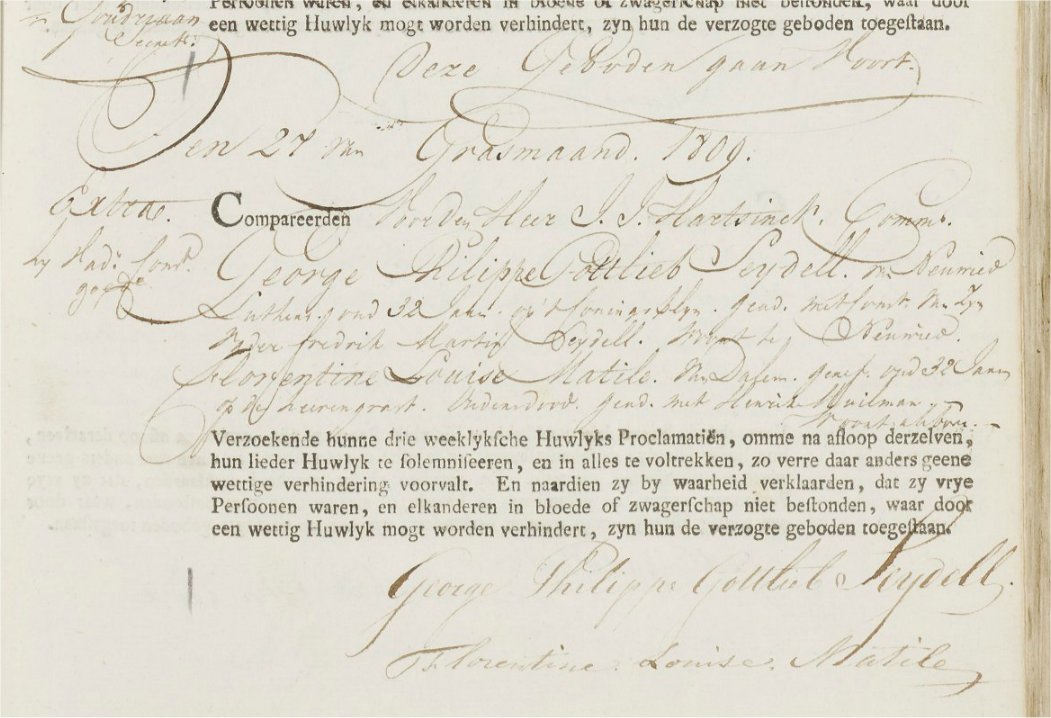 Persoonen waren, en elkanderen in bloede of zwagerschap niet bestonden, waar door
een wettig Huwlyk mogt worden verhindert, zyn hun de verzogte geboden toegestaan.
Goudriaan
Secrets.
Deze Geboden gaan Voort.
Den 27 van Grasmaand. 1809.
Extra.
Compareerden Voor den Heer J. J. Hartsinck. Comm.
George Philippe Gottlieb Seydell. van Neuwied
Luthers. oud 32 Jaar. op't Coningsplyn. geads. met consent. van Zyn
Vader Fredrik Martin Seydell. Woont te Neuwied.
Florentine Louise Matile. van geref. oud 32 Jaar
op de heerengragt. Ouders dood. geads. met Hinrik
Verzoekende hunne drie weeklyksche Huwlyks Proclamatiën, omme na afloop derzelven,
hun lieder Huwlyk te solemniseeren, en in alles te voltrekken, zo verre daar anders geene
wettige verhindering voorvalt. En naardien zy by waarheid verklaarden, dat zy vrye
Persoonen waren, en elkanderen in bloede of zwagerschap niet bestonden, waar door
een wettig Huwlyk mogt worden verhindert, zyn hun de verzogte geboden toegestaan.
George Philippe Gottlieb Seydell.
Florentine Louise. Matile